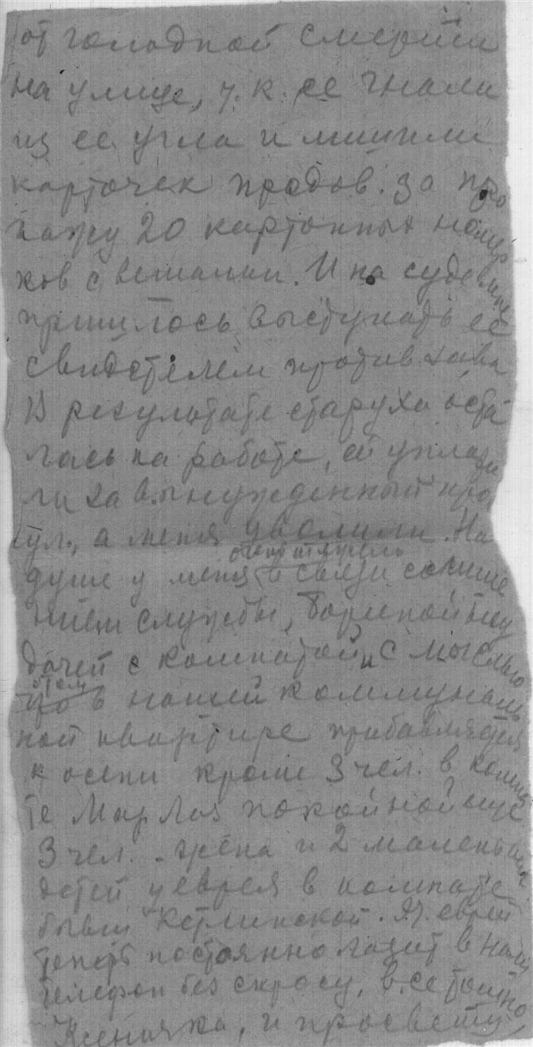 от голодной смерти
на улице, т.к. ее гнали
из ее угла и лишили
карточек продов. за про
пажу 20 картонных номер
ков с вешалки. И на суде мне
пришлось выступать ее
свидетелем против зава
В результате старуха оста
лась на работе, ей уплати
ли за вынужденный про
гул, а меня уволили. На
душе у меня очень тяжело
в связи с лише
нием службы,
дачей с комнатой и с мыслью
о том
что в нашей коммуналь
ной квартире прибавляется
к осени кроме 3 чел. в комна
те Мар Яз покойной еще
3 чел. - жена и 2 маленьких
детей у еврея в комнате
бывш Кетлинской. Эт. еврей
теперь постоянно лазит в наш
телефон без спросу,
и просвету